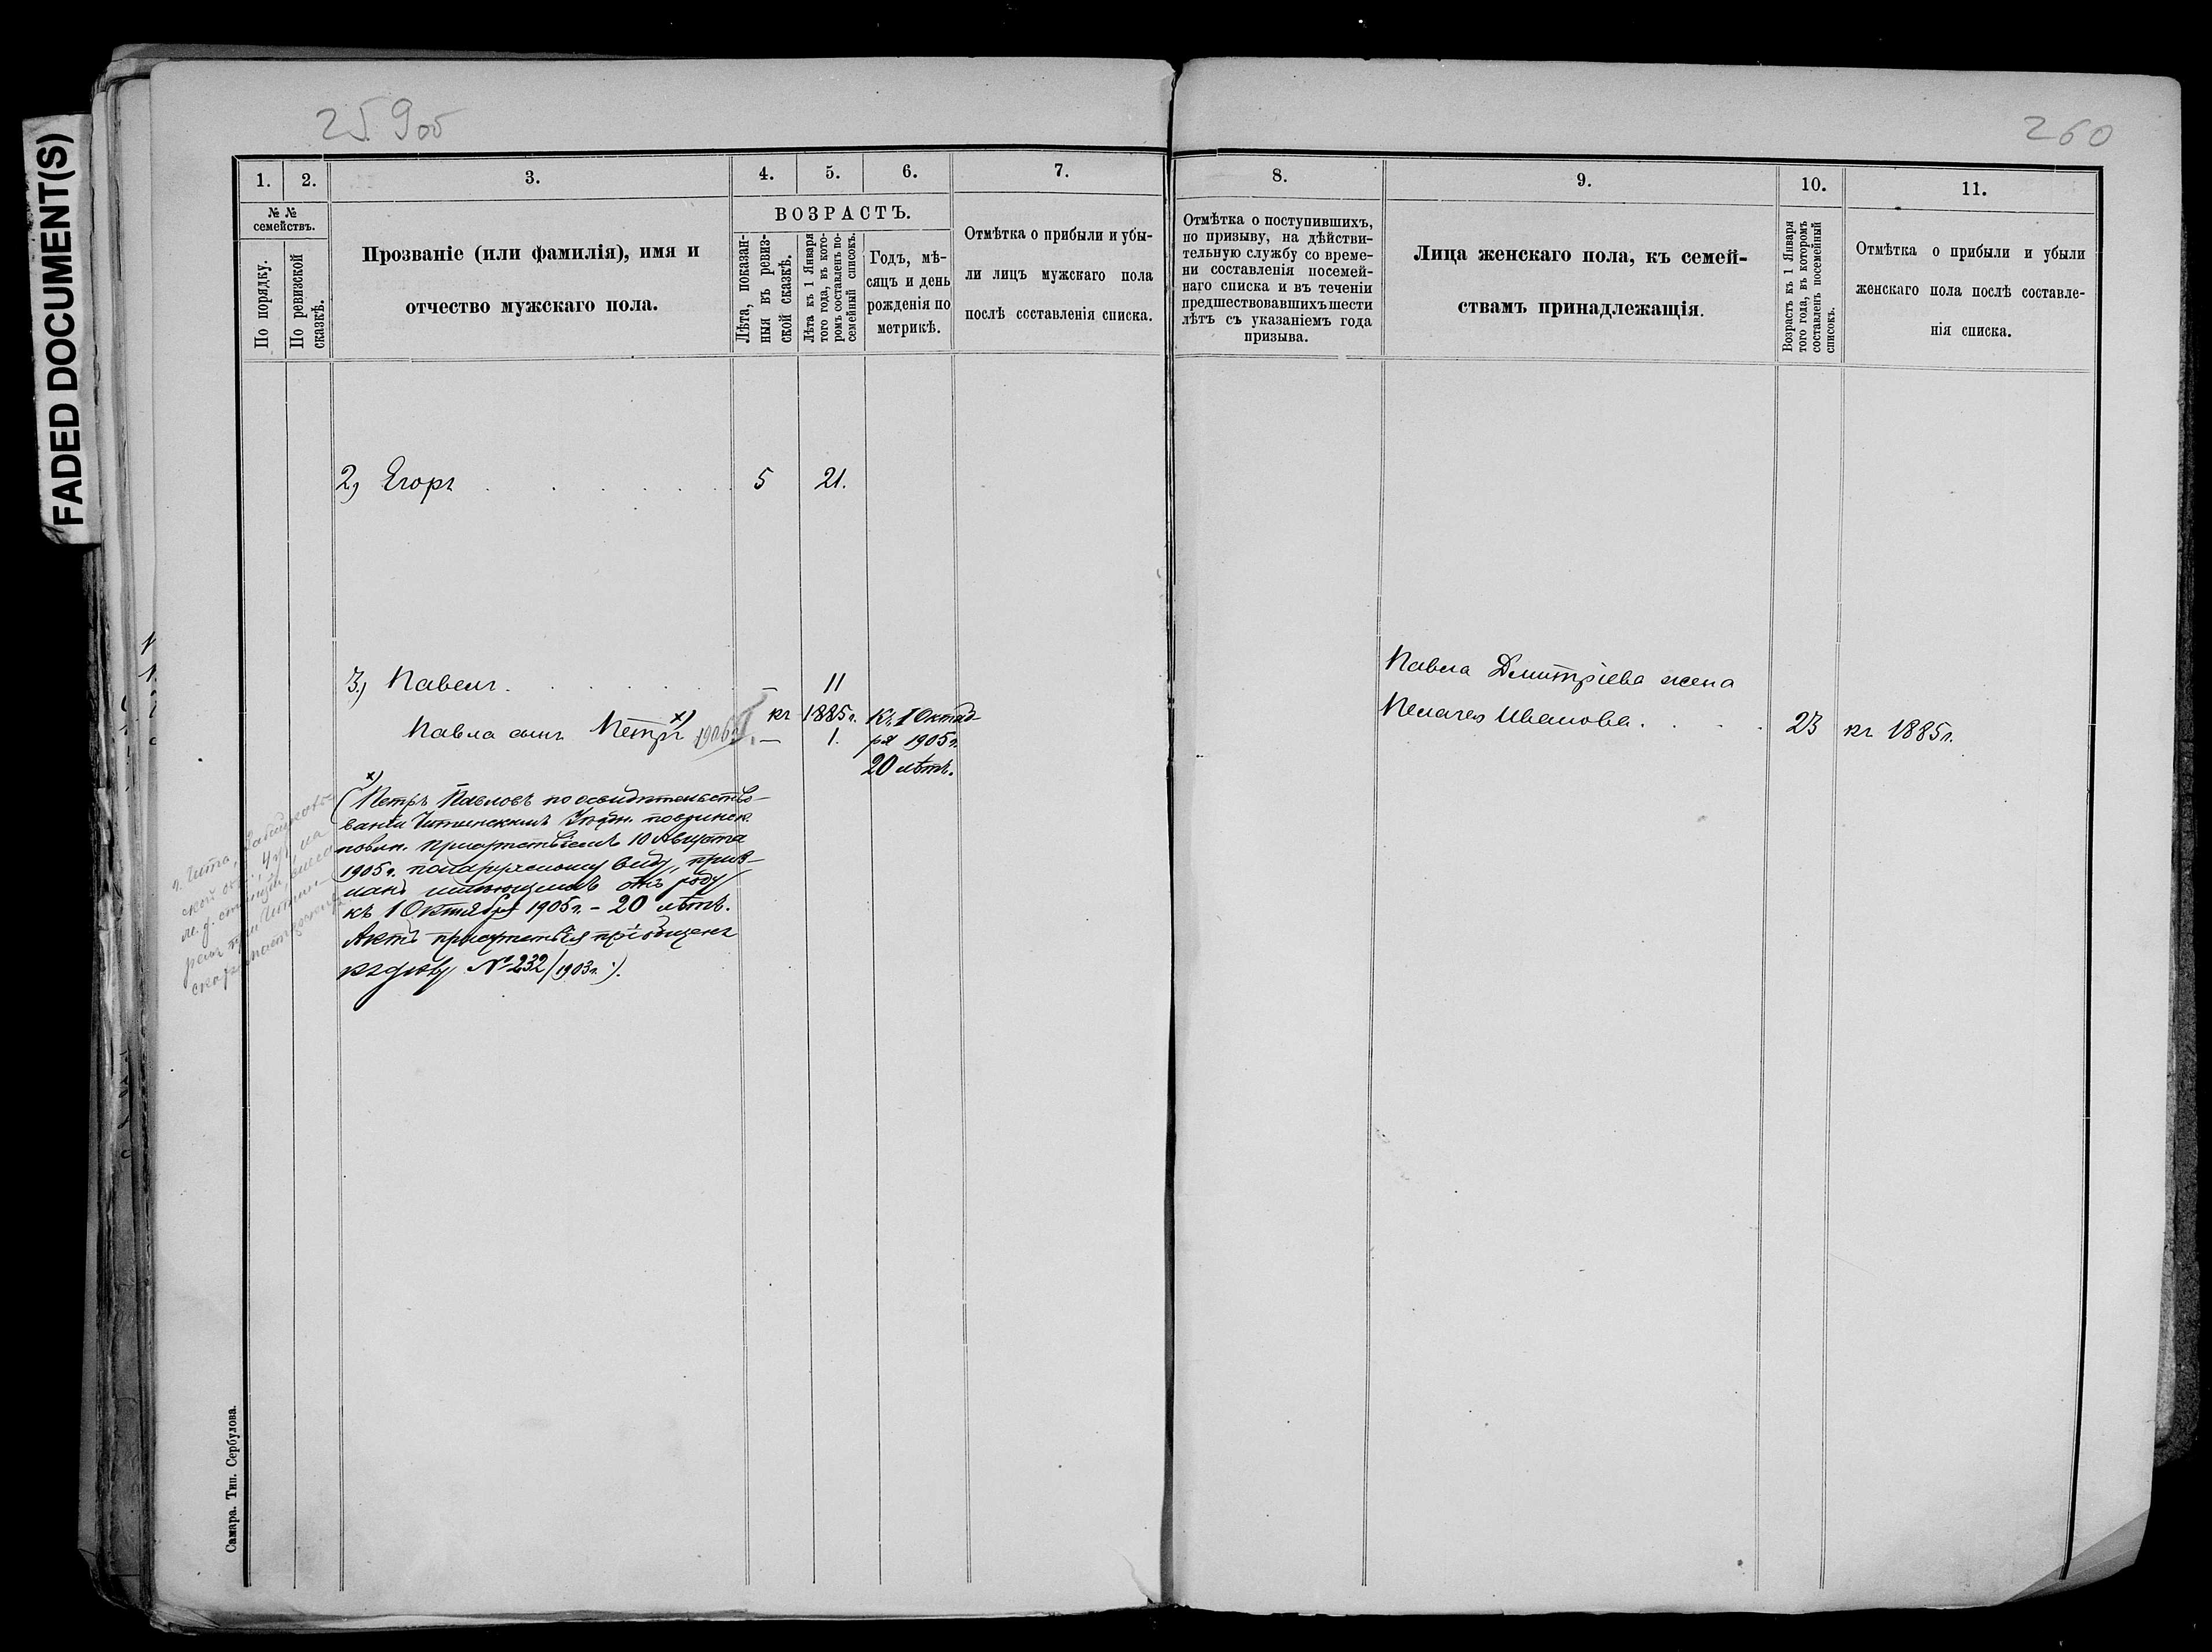 FADED DOCUMENT(S)
259об
260
1.
2.
3.
4.
5.
6.
7.
8.
9.
10.
11.
№ №
семействъ.
По порядку.
По ревизской
сказкѣ.
Прозваніе (или фамилія), имя и
отчество мужскаго пола.
ВОЗРАСТЪ.
Лѣта, показан-
ныя въ ревиз-
ской сказкѣ.
Лѣта къ 1 Января
того года, въ кото-
ромъ составленъ по-
семейный списокъ.
Годъ, мѣ-
сяцъ и день
рожденія по
метрикѣ.
Отмѣтка о прибыли и убы-
ли лицъ мужскаго пола
послѣ составленія списка.
Отмѣтка о поступившихъ,
по призыву, на дѣйстви-
тельную службу со време-
ни составленія посемей-
наго списка и въ теченіи
предшествовавшихъ шести
лѣтъ съ указаніемъ года
призыва.
Лица женскаго пола, къ семей-
ствамъ принадлежащія.
Возрастъ къ 1 Января
того года, въ которомъ
составленъ посемейный
списокъ.
Отмѣтка о прибыли и убыли
женскаго пола послѣ составле-
нія списка.
2) Егоръ . . . . . 5 21.
3) Павелъ . . . . . — 11
къ 1885 г.
Павла сынъ Петръ x) 1906 г. — 1.
Къ 1 Октяб-
ря 1905 г.
20 лѣтъ.
Павла Дмитріева жена
Пелагея Иванова . . . 23 къ 1885 г.
x)
(Петръ Павловъ по освидѣтельство-
ваніи Читинскимъ Уѣздн. по воинск.
повин. присутствіемъ 10 Августа
1905 г. по наружному виду, приз-
нанъ имѣющимъ отъ роду
къ 1 Октября 1905 г. - 20 лѣтъ.
Актъ присутствія пріобщенъ
къ дѣлу № 232/1903 г.).
г. Чита, Забайкаль-
ской
Самара. Тип. Сербулова.